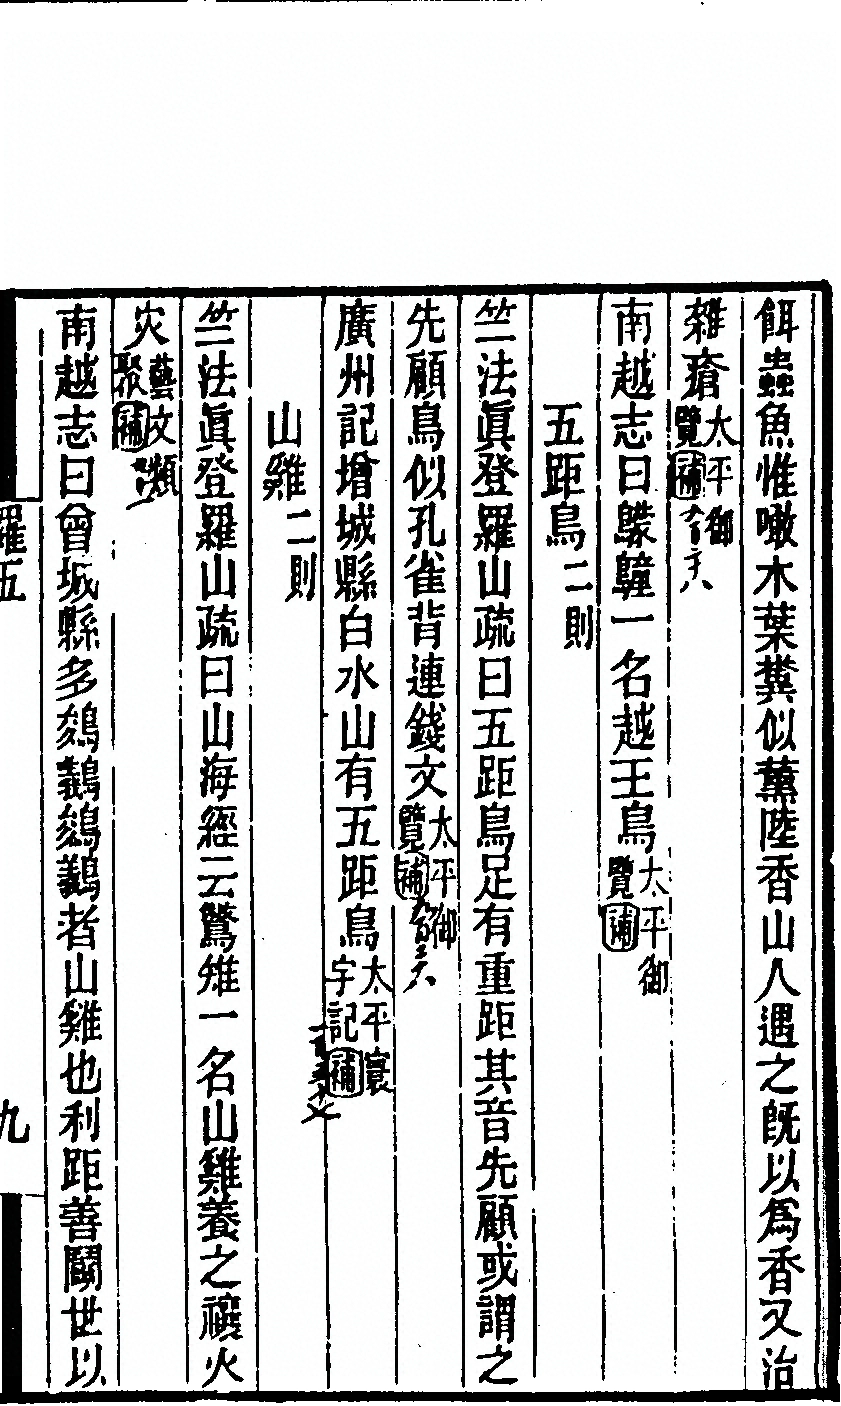 餌蟲魚惟噉木葉糞似薰陸香山人遇之旣以爲香又治
雜瘡太平御覽補
南越志曰䴌鸈一名越王鳥太平御覽補
五距鳥二則
竺法眞登羅山疏曰五距鳥足有重距其音先顧或謂之
先顧鳥似孔雀背連錢文太平御覽補
廣州記增城縣白水山有五距鳥太平寰宇記補
山雞二則
竺法眞登羅山疏曰山海經云鷩雉一名山雞養之禳火
灾藝文類聚補
南越志曰曾城縣多鵕䴊鵕䴊者山雞也利距善鬭世以
羅五
九